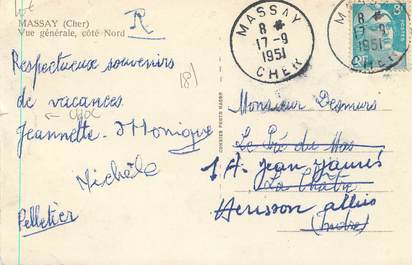 MASSAY (Cher)
Vue générale, côté Nord
R
Respectueux souvenirs
de vacances
Jeannette - Monique
Michèle
Pelletier
18
MASSAY
8 *
17-9
1951
CHER
MASSAY
8 *
17-9
1951
CHER
Monsieur Desmurs
Le Pré du Mas
jean jaurès
La Châtre
Herisson allier
(Indre)